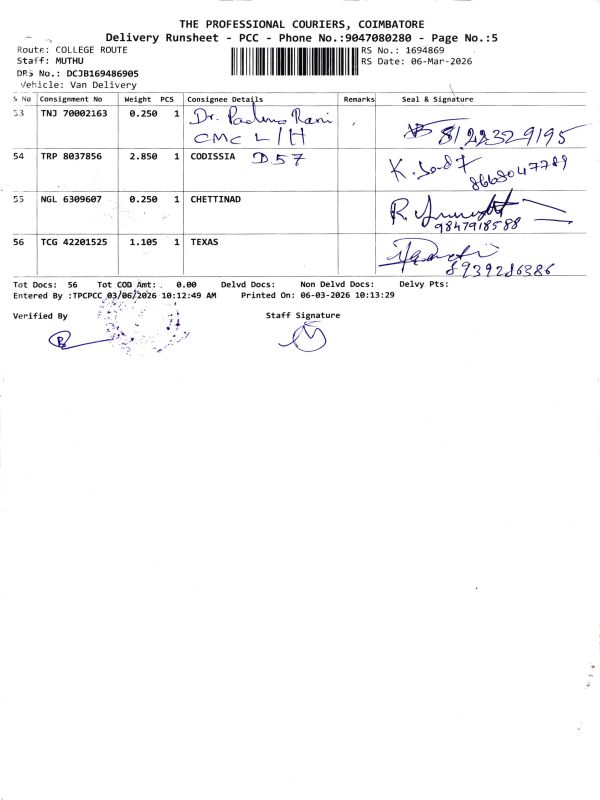 THE PROFESSIONAL COURIERS, COIMBATORE
Delivery Runsheet - PCC - Phone No.:9047080280 - Page No.:5
Route: COLLEGE ROUTE
RS No.: 1694869
Staff: MUTHU
RS Date: 06-Mar-2026
DRS No.: DCJB169486905
Vehicle: Van Delivery
S No Consignment No Weight PCS Consignee Details Remarks Seal & Signature
53 TNJ 70002163 0.250 1 Dr. Padma Rani
CMC L/H 8122329195
54 TRP 8037856 2.850 1 CODISSIA D57 K.
8668047789
55 NGL 6309607 0.250 1 CHETTINAD R.
9847918588
56 TCG 42201525 1.105 1 TEXAS
8939286386
Tot Docs: 56 Tot COD Amt: 0.00 Delvd Docs: Non Delvd Docs: Delvy Pts:
Entered By :TPCPCC 03/06/2026 10:12:49 AM Printed On: 06-03-2026 10:13:29
Verified By Staff Signature